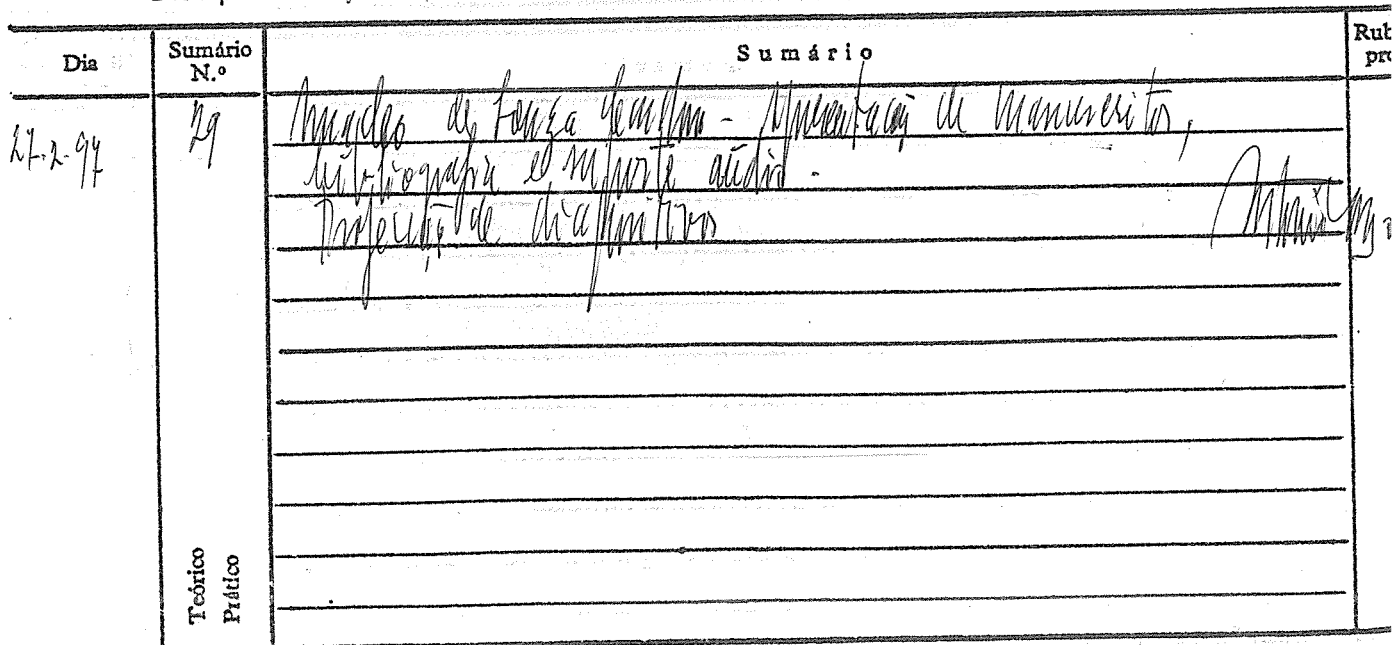 Dia
Sumário N.º
Sumário
27-2-97
29
de - Apresentação de manuscritos,
bibliografia e suporte áudio.
Projecção de diapositivos
Teórico
Prático